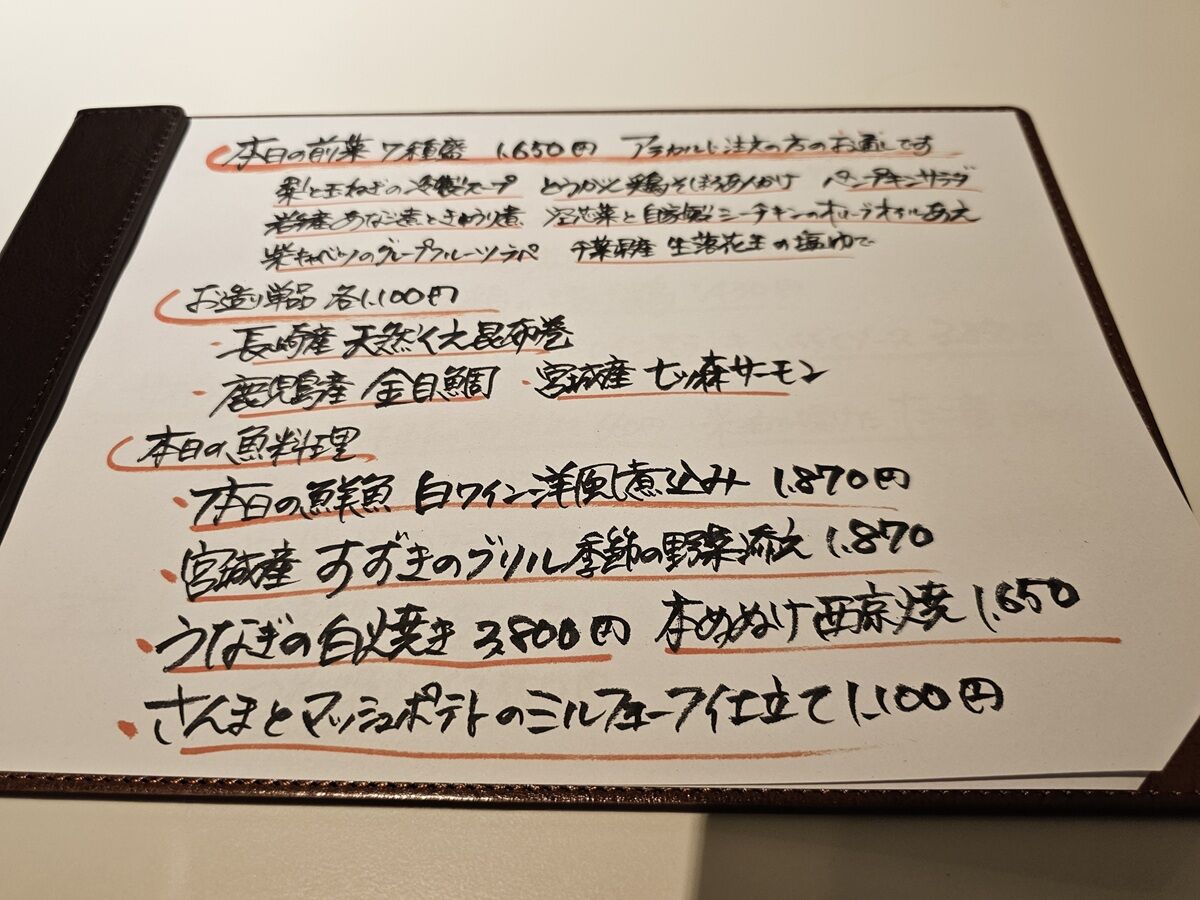 本日の前菜 7種盛 1,650円 アラカルト注文の方のお通しです
梨と玉ねぎの冷製スープ とうがんと鶏そぼろあんかけ パンプキンサラダ
岩手産あなご煮ときゅうり煮 空芯菜と自家製シーチキンのオリーブオイルあえ
紫キャベツのグレープフルーツラペ 千葉県産 生落花生の塩ゆで
お造り単品 各1,100円
・長崎産 天然くえ昆布巻
・鹿児島産 金目鯛 ・宮城産 七ツ森サーモン
本日の魚料理
・本日の鮮魚 白ワイン洋風煮込み 1,870円
・宮城産 すずきのグリル 季節の野菜添え 1,870
・うなぎの白焼き 3,800円 本ぬぬけ西京焼 1,650
・さんまとマッシュポテトのミルフィーユ仕立て 1,100円